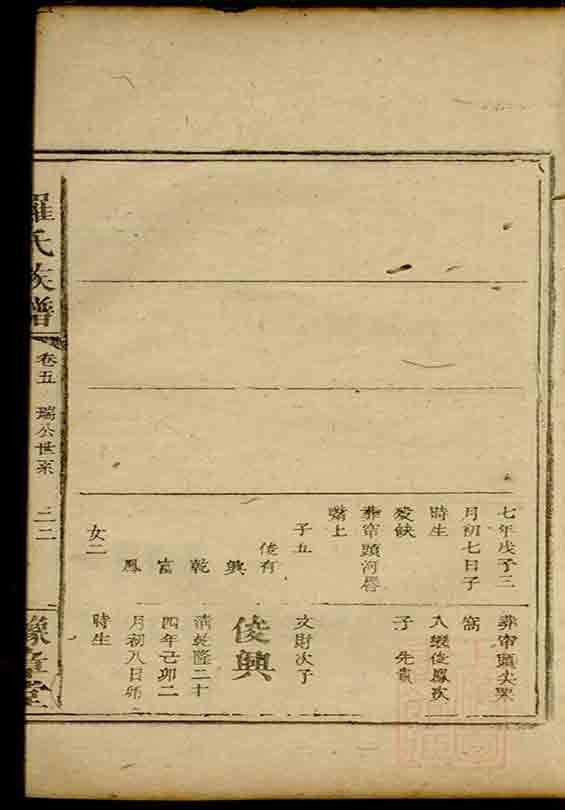 七年戊子三
月初七日子
時生
歿缺
葬帘頭河唇
嘴上
子五
俊有
興
乾
富
鳳
女二
葬帘頭尖栗
窩
入繼俊鳳次
子 先貴
文財次子
俊興
清乾隆二十
四年己卯二
月初八日卯
時生
羅氏族譜
卷五 瑞公世系
豫章堂